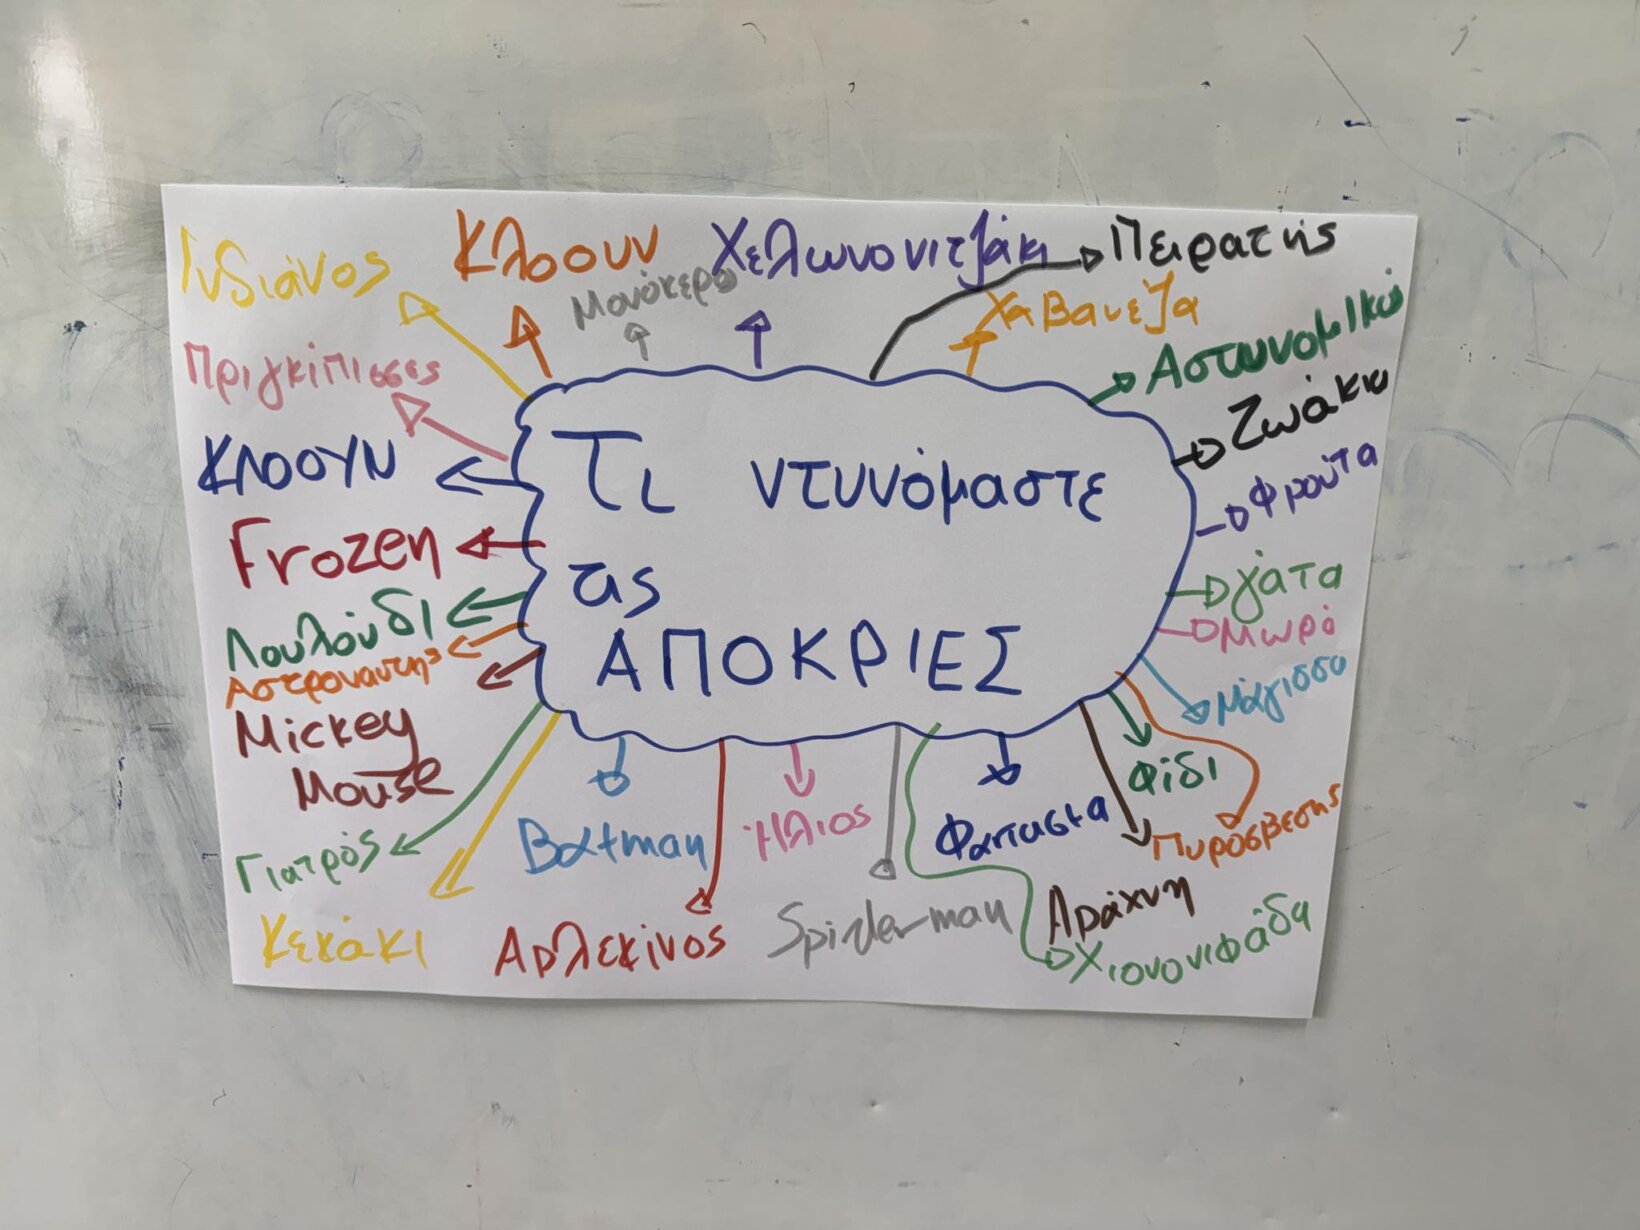 Ινδιάνος
Κλοουν
Μονόκερο
Χελωνονιτζάκι
Πειρατής
Χαβανέζα
Αστυνομικό
Ζωάκια
Φρούτα
γάτα
Μωρό
Μάγισσα
Φίδι
Πυροσβεσης
Αράχνη
Χιονονιφάδα
Φαντασια
Spiderman
Ήλιος
Αρλεκίνος
Batman
Κεκάκι
Γιατρός
Mickey
Mouse
Αστροναυτης
Λουλούδι
Frozen
ΚΛΟΟΥΝ
Πριγκίπισσες
Τι ντυνόμαστε
τις
ΑΠΟΚΡΙΕΣ